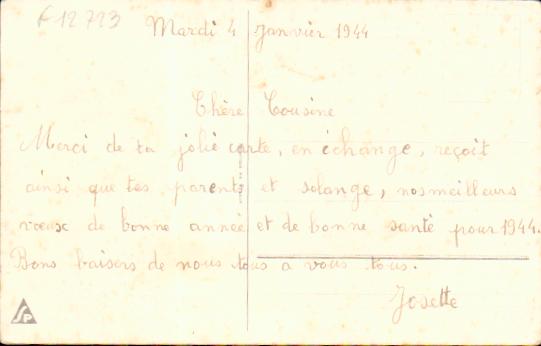 F 12723
Mardi 4 Janvier 1944
Chère Cousine
Merci de ta jolie carte, en échange, reçoit
ainsi que tes parents et solange, nos meilleurs
vœux de bonne année et de bonne santé pour 1944.
Bons baisers de nous tous a vous tous.
Josette
SP